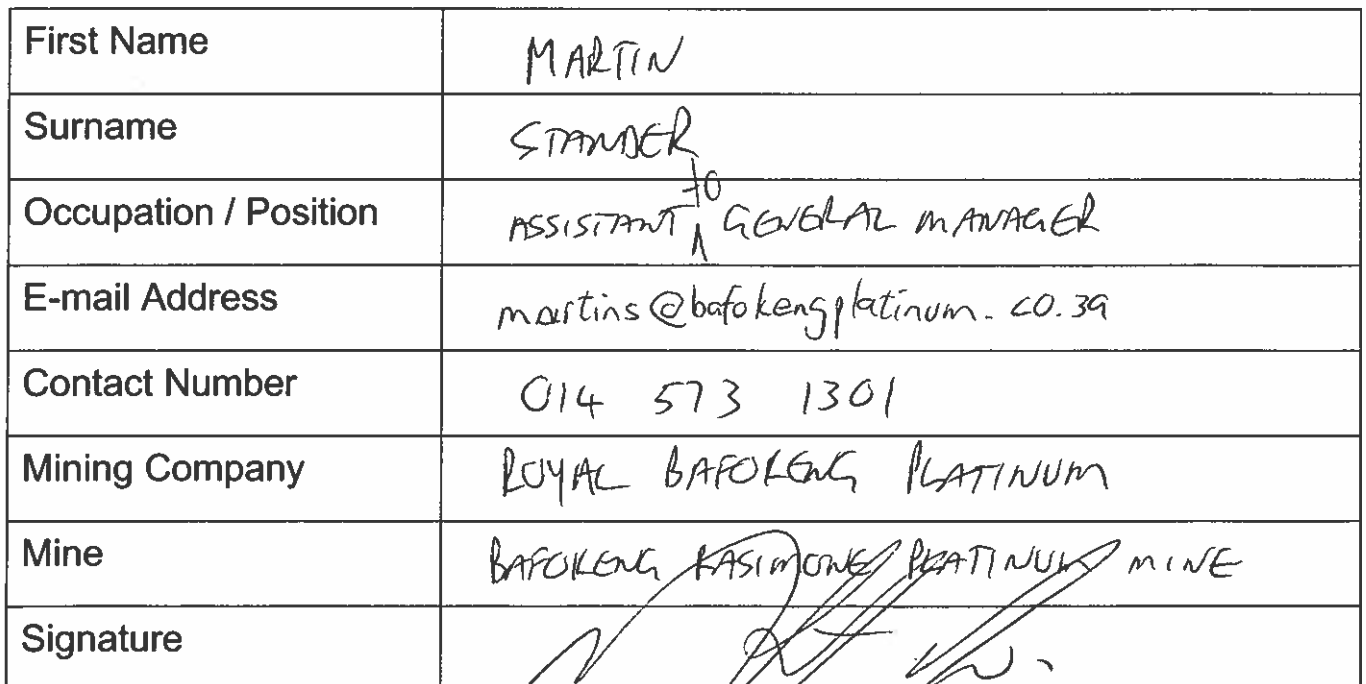 First Name MARTIN
Surname STANDER
Occupation / Position ASSISTANT to GENERAL MANAGER
E-mail Address martins@bafokengplatinum.co.za
Contact Number 014 573 1301
Mining Company ROYAL BAFOKENG PLATINUM
Mine BAFOKENG RASIMONE PLATINUM MINE
Signature